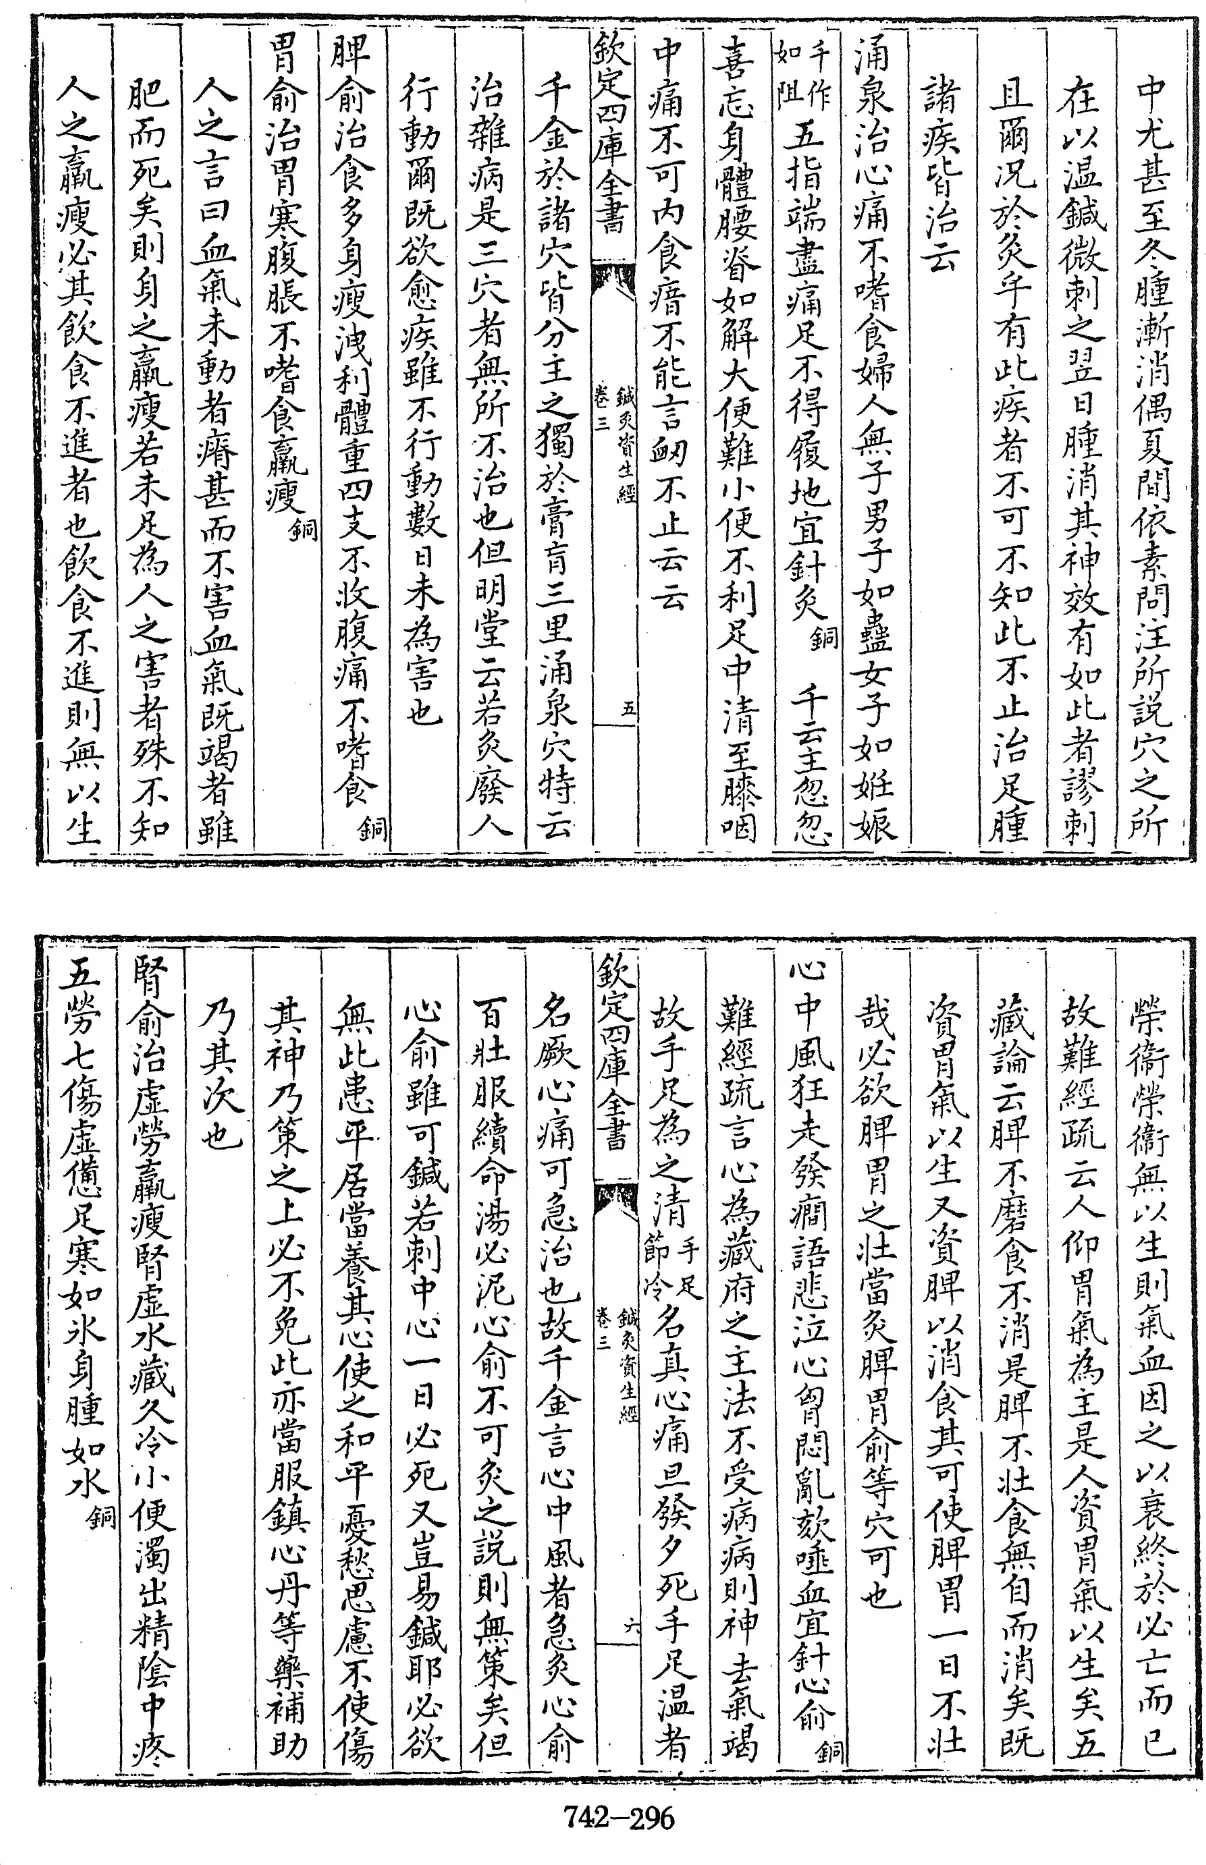 中尤甚至冬腫漸消偶夏間依素問注所說穴之所
在以温鍼微刺之翌日腫消其神效有如此者謬刺
且爾况於灸乎有此疾者不可不知此不止治足腫
諸疾皆治云
涌泉治心痛不嗜食婦人無子男子如蠱女子如姙娠
千作如阻五指端盡痛足不得履地宜針灸銅 千云主忽忽
喜忘身體腰脊如解大便難小便不利足中清至膝咽
中痛不可内食瘖不能言衂不止云云
欽定四庫全書
鍼灸資生經
卷三
五
千金於諸穴皆分主之獨於膏肓三里涌泉穴特云
治雜病是三穴者無所不治也但明堂云若灸廢人
行動爾既欲愈疾雖不行動數日未為害也
脾俞治食多身瘦洩利體重四支不收腹痛不嗜食銅
胃俞治胃寒腹脹不嗜食羸瘦銅
人之言曰血氣未動者瘠甚而不害血氣既竭者雖
肥而死矣則身之羸瘦若未足為人之害者殊不知
人之羸瘦必其飲食不進者也飲食不進則無以生
榮衞榮衞無以生則氣血因之以衰終於必亡而已
故難經疏云人仰胃氣為主是人資胃氣以生矣五
藏論云脾不磨食不消是脾不壯食無自而消矣既
資胃氣以生又資脾以消食其可使脾胃一日不壯
哉必欲脾胃之壯當灸脾胃俞等穴可也
心中風狂走發癇語悲泣心胷悶亂欬唾血宜針心俞銅
難經疏言心為藏府之主法不受病病則神去氣竭
故手足為之清手足節冷名真心痛旦發夕死手足温者
欽定四庫全書
鍼灸資生經
卷三
六
名厥心痛可急治也故千金言心中風者急灸心俞
百壯服續命湯必泥心俞不可灸之說則無策矣但
心俞雖可鍼若刺中心一日必死又豈易鍼耶必欲
無此患平居當養其心使之和平憂愁思慮不使傷
其神乃策之上必不免此亦當服鎮心丹等藥補助
乃其次也
腎俞治虛勞羸瘦腎虛水藏久冷小便濁出精陰中疼
五勞七傷虛憊足寒如氷身腫如水銅
742-296